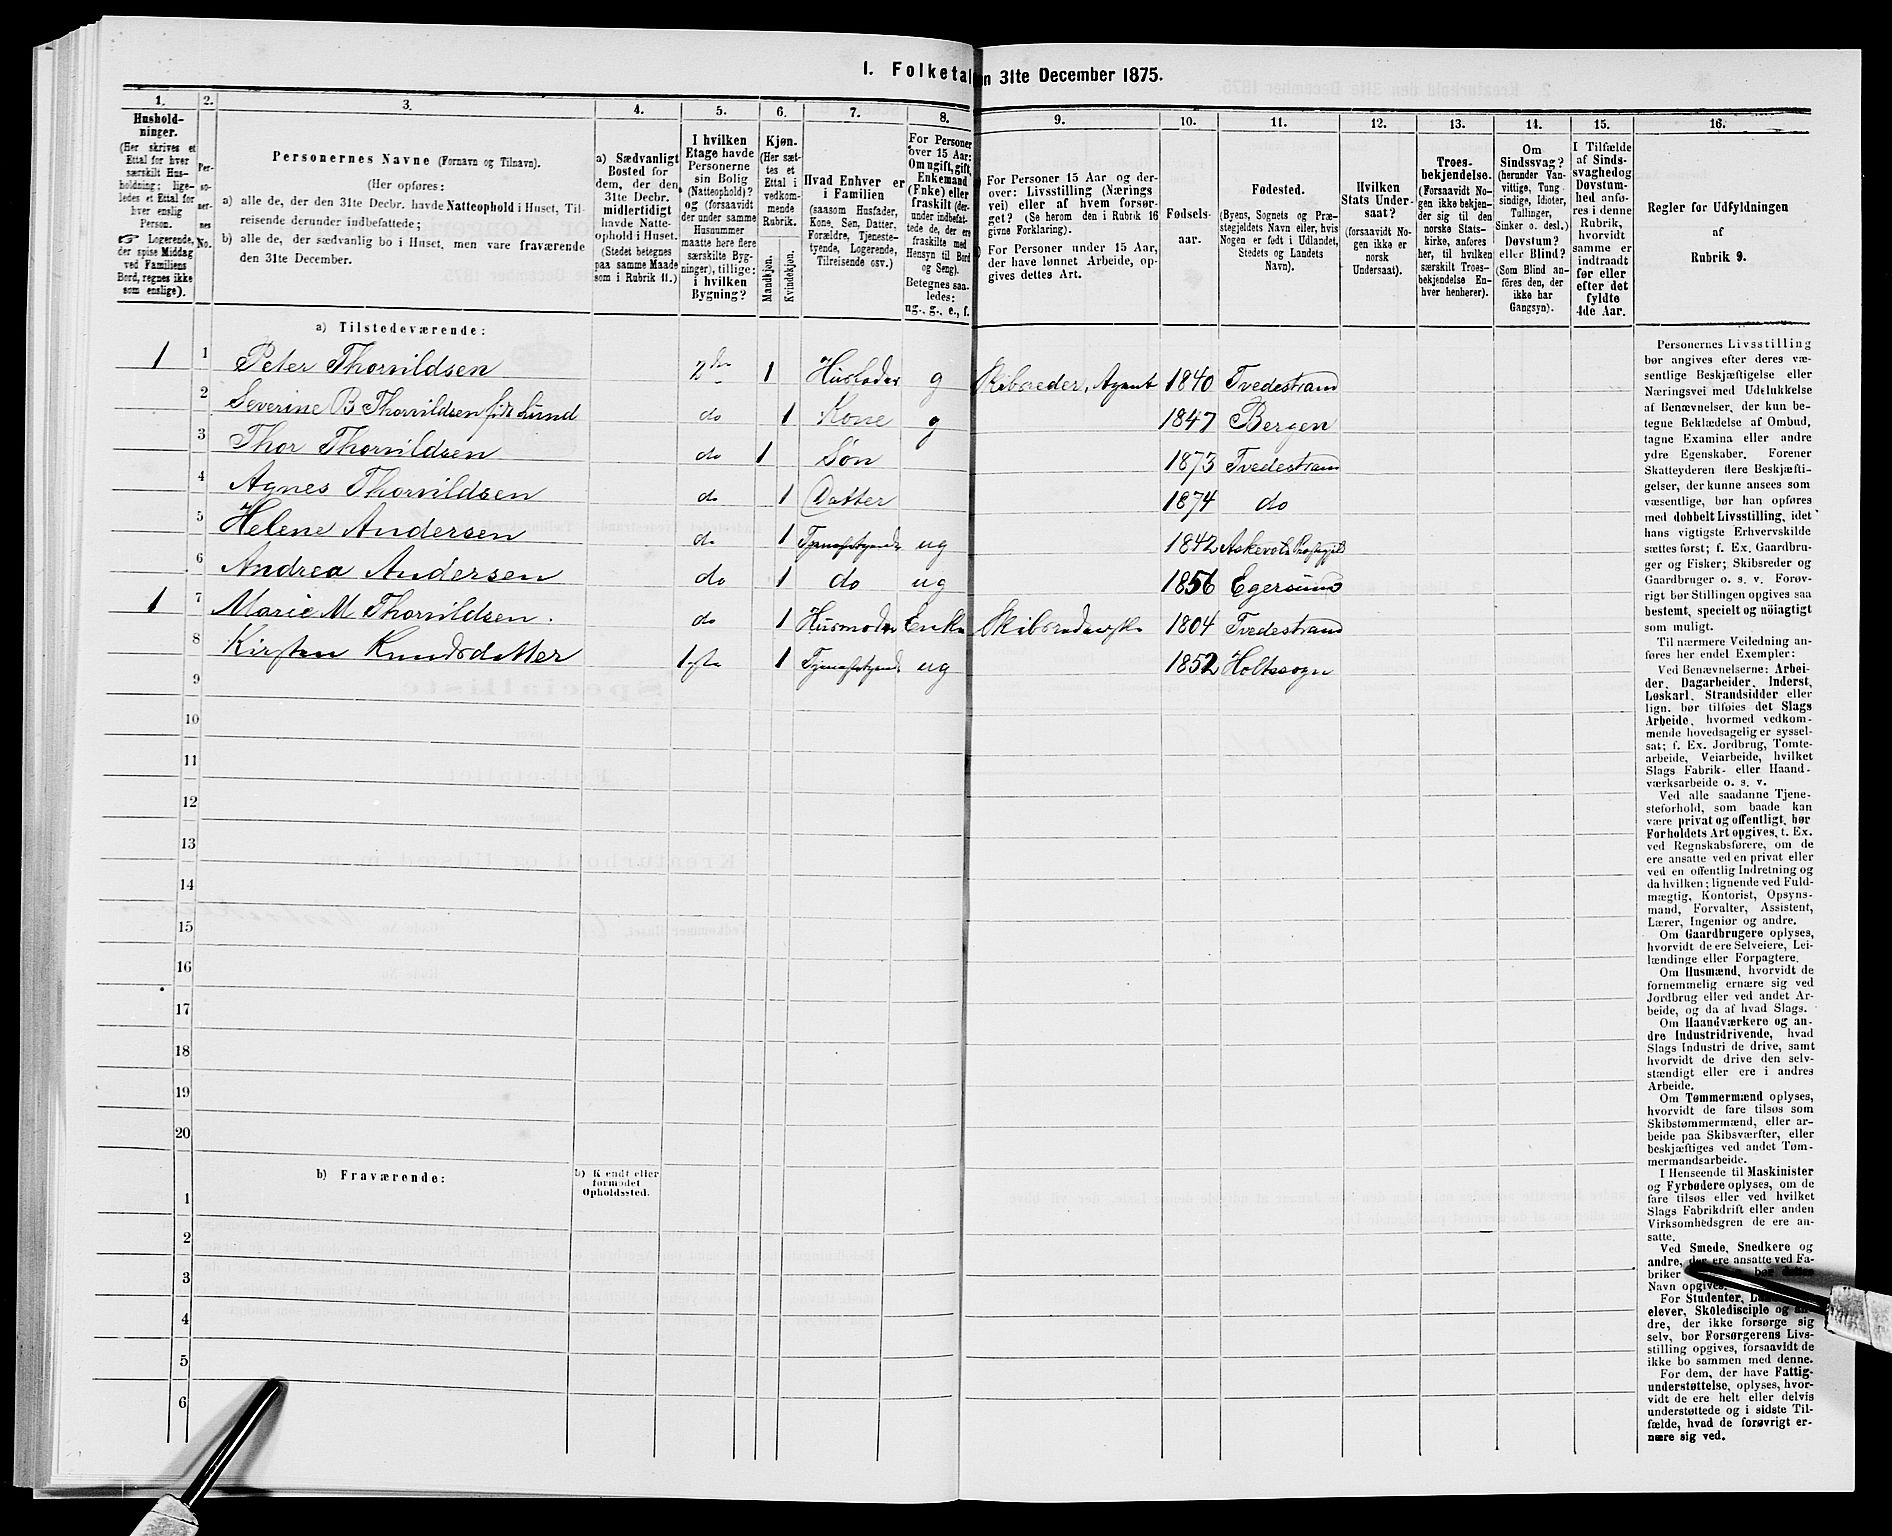 I. Folketal
n 31te December 1875.
1. 2. 3. 4. 5. 6. 7. 8. 9. 10. 11. 12. 13. 14. 15. 16.
Hushold-
ninger.
(Her skrives et
Ettal for hver
særskilt Hus-
holdning; lige-
ledes et Ettal for
hver enslig
Person.
☞ Logerende,
der spise Middag
ved Familiens
Bord, regnes ikke
som enslige).
Per-
so-
ner-
nes
No.
Personernes Navne (Fornavn og Tilnavn).
(Her opføres:
a) alle de, der den 31te Decbr. havde Natteophold i Huset, Til-
reisende derunder indbefattede;
b) alle de, der sædvanlig bo i Huset, men vare fraværende
den 31te December.
a) Sædvanligt
Bosted for
dem, der den
31te Decbr.
midlertidigt
havde Natte-
ophold i Huset.
(Stedet betegnes
paa samme Maade
som i Rubrik 11.)
I hvilken
Etage havde
Personerne
sin Bolig
(Natteophold)?
og (forsaavidt
der under samme
Husnummer
maatte høre flere
særskilte Byg-
ninger), tillige:
i hvilken
Bygning?
Kjøn.
(Her sæt-
tes et
Ettal i
vedkom-
mende
Rubrik.
Mandkjøn.
Kvindekjøn.
Hvad Enhver er
i Familien
(saasom Husfader,
Kone, Søn, Datter,
Forældre, Tjeneste-
tyende, Logerende,
Tilreisende osv.)
For Personer
over 15 Aar:
Om ugift, gift,
Enkemand
(Enke) eller
fraskilt (der-
under indbefat-
tede de, der ere
fraskilte med
Hensyn til Bord
og Seng).
Betegnes saa-
ledes:
ug., g., e., f.
For Personer 15 Aar og der-
over: Livsstilling (Nærings
vei) eller af hvem forsør-
get? (Se herom den i Rubrik 16
givne Forklaring).
For Personer under 15 Aar,
der have lønnet Arbeide, op-
gives dettes Art.
Fødsels-
aar.
Fødested.
(Byens, Sognets og Præ-
stegjeldets Navn eller, hvis
Nogen er født i Udlandet,
Stedets og Landets
Navn).
Hvilken
Stats Under-
saat?
(forsaavidt No-
gen ikke er
norsk
Undersaat).
Troes-
bekjendelse.
(Forsaavidt No-
gen ikke bekjen-
der sig til den
norske Stats-
kirke, anføres
her, til hvilken
særskilt Troes-
bekjendelse En-
hver henhører).
Om
Sindssvag?
(herunder Van-
vittige, Tung-
sindige, Idioter,
Tullinger,
Sinker o. desl.).
Døvstum?
eller Blind?
(Som Blind an-
føres den, der
ikke har
Gangsyn).
I Tilfælde
af Sinds-
svaghed og
Døvstum-
hed anfø-
res i denne
Rubrik,
hvorvidt
samme er
indtraadt
før eller
efter det
fyldte
4de Aar.
Regler for Udfyldningen
af
Rubrik 9.
a) Tilstedeværende:
1 1 Peter Thorvildsen 2den 1 Husfader g Skibsreder, Agent 1840 Tvedestrand
2 Severine B Thorvildsen født Lund do 1 Kone g 1847 Bergen
3 Thor Thorvildsen do 1 Søn 1873 Tvedestrand
4 Agnes Thorvildsen do 1 Datter 1874 do
5 Helene Andersen do 1 Tjenestetyende ug 1842 Askevold
6 Andrea Andersen do 1 do ug 1856 Egersund
1 7 Marie M Thorvildsen. do 1 Husmoder Enke 1804 Tvedestrand
8 Kirsten Knudsdatter 1ste 1 Tjenestetyende ug 1852 Holtssogn
9
10
11
12
13
14
15
16
17
18
19
20
b) Fraværende:
b) Kjendt eller
formodet
Opholdssted.
1
2
3
4
5
6
Personernes Livsstilling
bør angives efter deres væ-
sentlige Beskjæftigelse eller
Næringsvei med Udelukkelse
af Benævnelser, der kun be-
tegne Beklædelse af Ombud,
tagne Examina eller andre
ydre Egenskaber. Forener
Skatteyderen flere Beskjæfti-
gelser, der kunne ansees som
væsentlige, bør han opføres
med dobbelt Livsstilling, idet
hans vigtigste Erhvervskilde
sættes først; f. Ex. Gaardbru-
ger og Fisker; Skibsreder og
Gaardbruger o. s. v. Forøv-
rigt bør Stillingen opgives saa
bestemt, specielt og nöiagtigt
som muligt.
Til nærmere Veiledning an-
føres her endel Exempler:
Ved Benævnelserne: Arbei-
der, Dagarbeider, Inderst,
Løskarl, Strandsidder eller
lign. bør tilføies det Slags
Arbeide, hvormed vedkom-
mende hovedsagelig er syssel-
sat; f. Ex. Jordbrug, Tomte-
arbeide, Veiarbeide, hvilket
Slags Fabrik- eller Haand-
værksarbeide o. s. v.
Ved alle saadanne Tjene-
steforhold, som baade kan
være privat og offentligt, bør
Forholdets Art opgives, t. Ex.
ved Regnskabsførere, om de
ere ansatte ved en privat eller
ved en offentlig Indretning og
da hvilken; lignende ved Fuld-
mægtig, Kontorist, Opsyns-
mand, Forvalter, Assistent,
Lærer, Ingeniør og andre.
Om Gaardbrugere oplyses,
hvorvidt de ere Selveiere, Lei-
lændinge eller Forpagtere.
Om Husmænd, hvorvidt de
fornemmelig ernære sig ved
Jordbrug eller ved andet Ar-
beide, og da af hvad Slags.
Om Haandværkere og an-
dre Industridrivende, hvad
Slags Industri de drive, samt
hvorvidt de drive den selv-
stændigt eller ere i andres
Arbeide.
Om Tømmermænd oplyses,
hvorvidt de fare tilsøs som
Skibstømmermænd, eller ar-
beide paa Skibsværfter, eller
beskjæftiges ved andet Tøm-
mermandsarbeide.
I Henseende til Maskinister
og Fyrbødere oplyses, om de
fare tilsøs eller ved hvilket
Slags Fabrikdrift eller anden
Virksomhedsgren de ere an-
satte.
Ved Smede, Snedkere og
andre, der ere ansatte ved Fa-
briker bør dettes
Navn opgives.
For Studenter,
elever, Skoledisciple og an-
dre, der ikke forsørge sig
selv, bør Forsørgerens Livs-
stilling opgives, forsaavidt de
ikke bo sammen med denne.
For dem, der have Fattig-
understøttelse, oplyses, hvor-
vidt de ere helt eller delvis
understøttede og i sidste Til-
fælde, hvad de forøvrigt er-
nære sig ved.